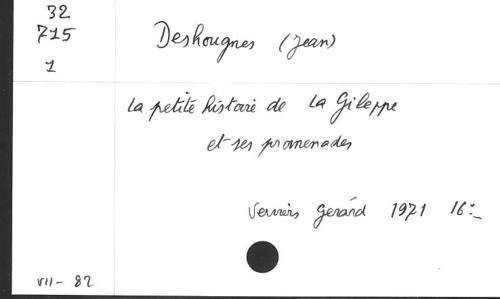 32
715
1
Deshougnes (Jean)
La petite histoire de La Gileppe
et ses promenades
Verviers Gérard 1971 16°_
VII - 82